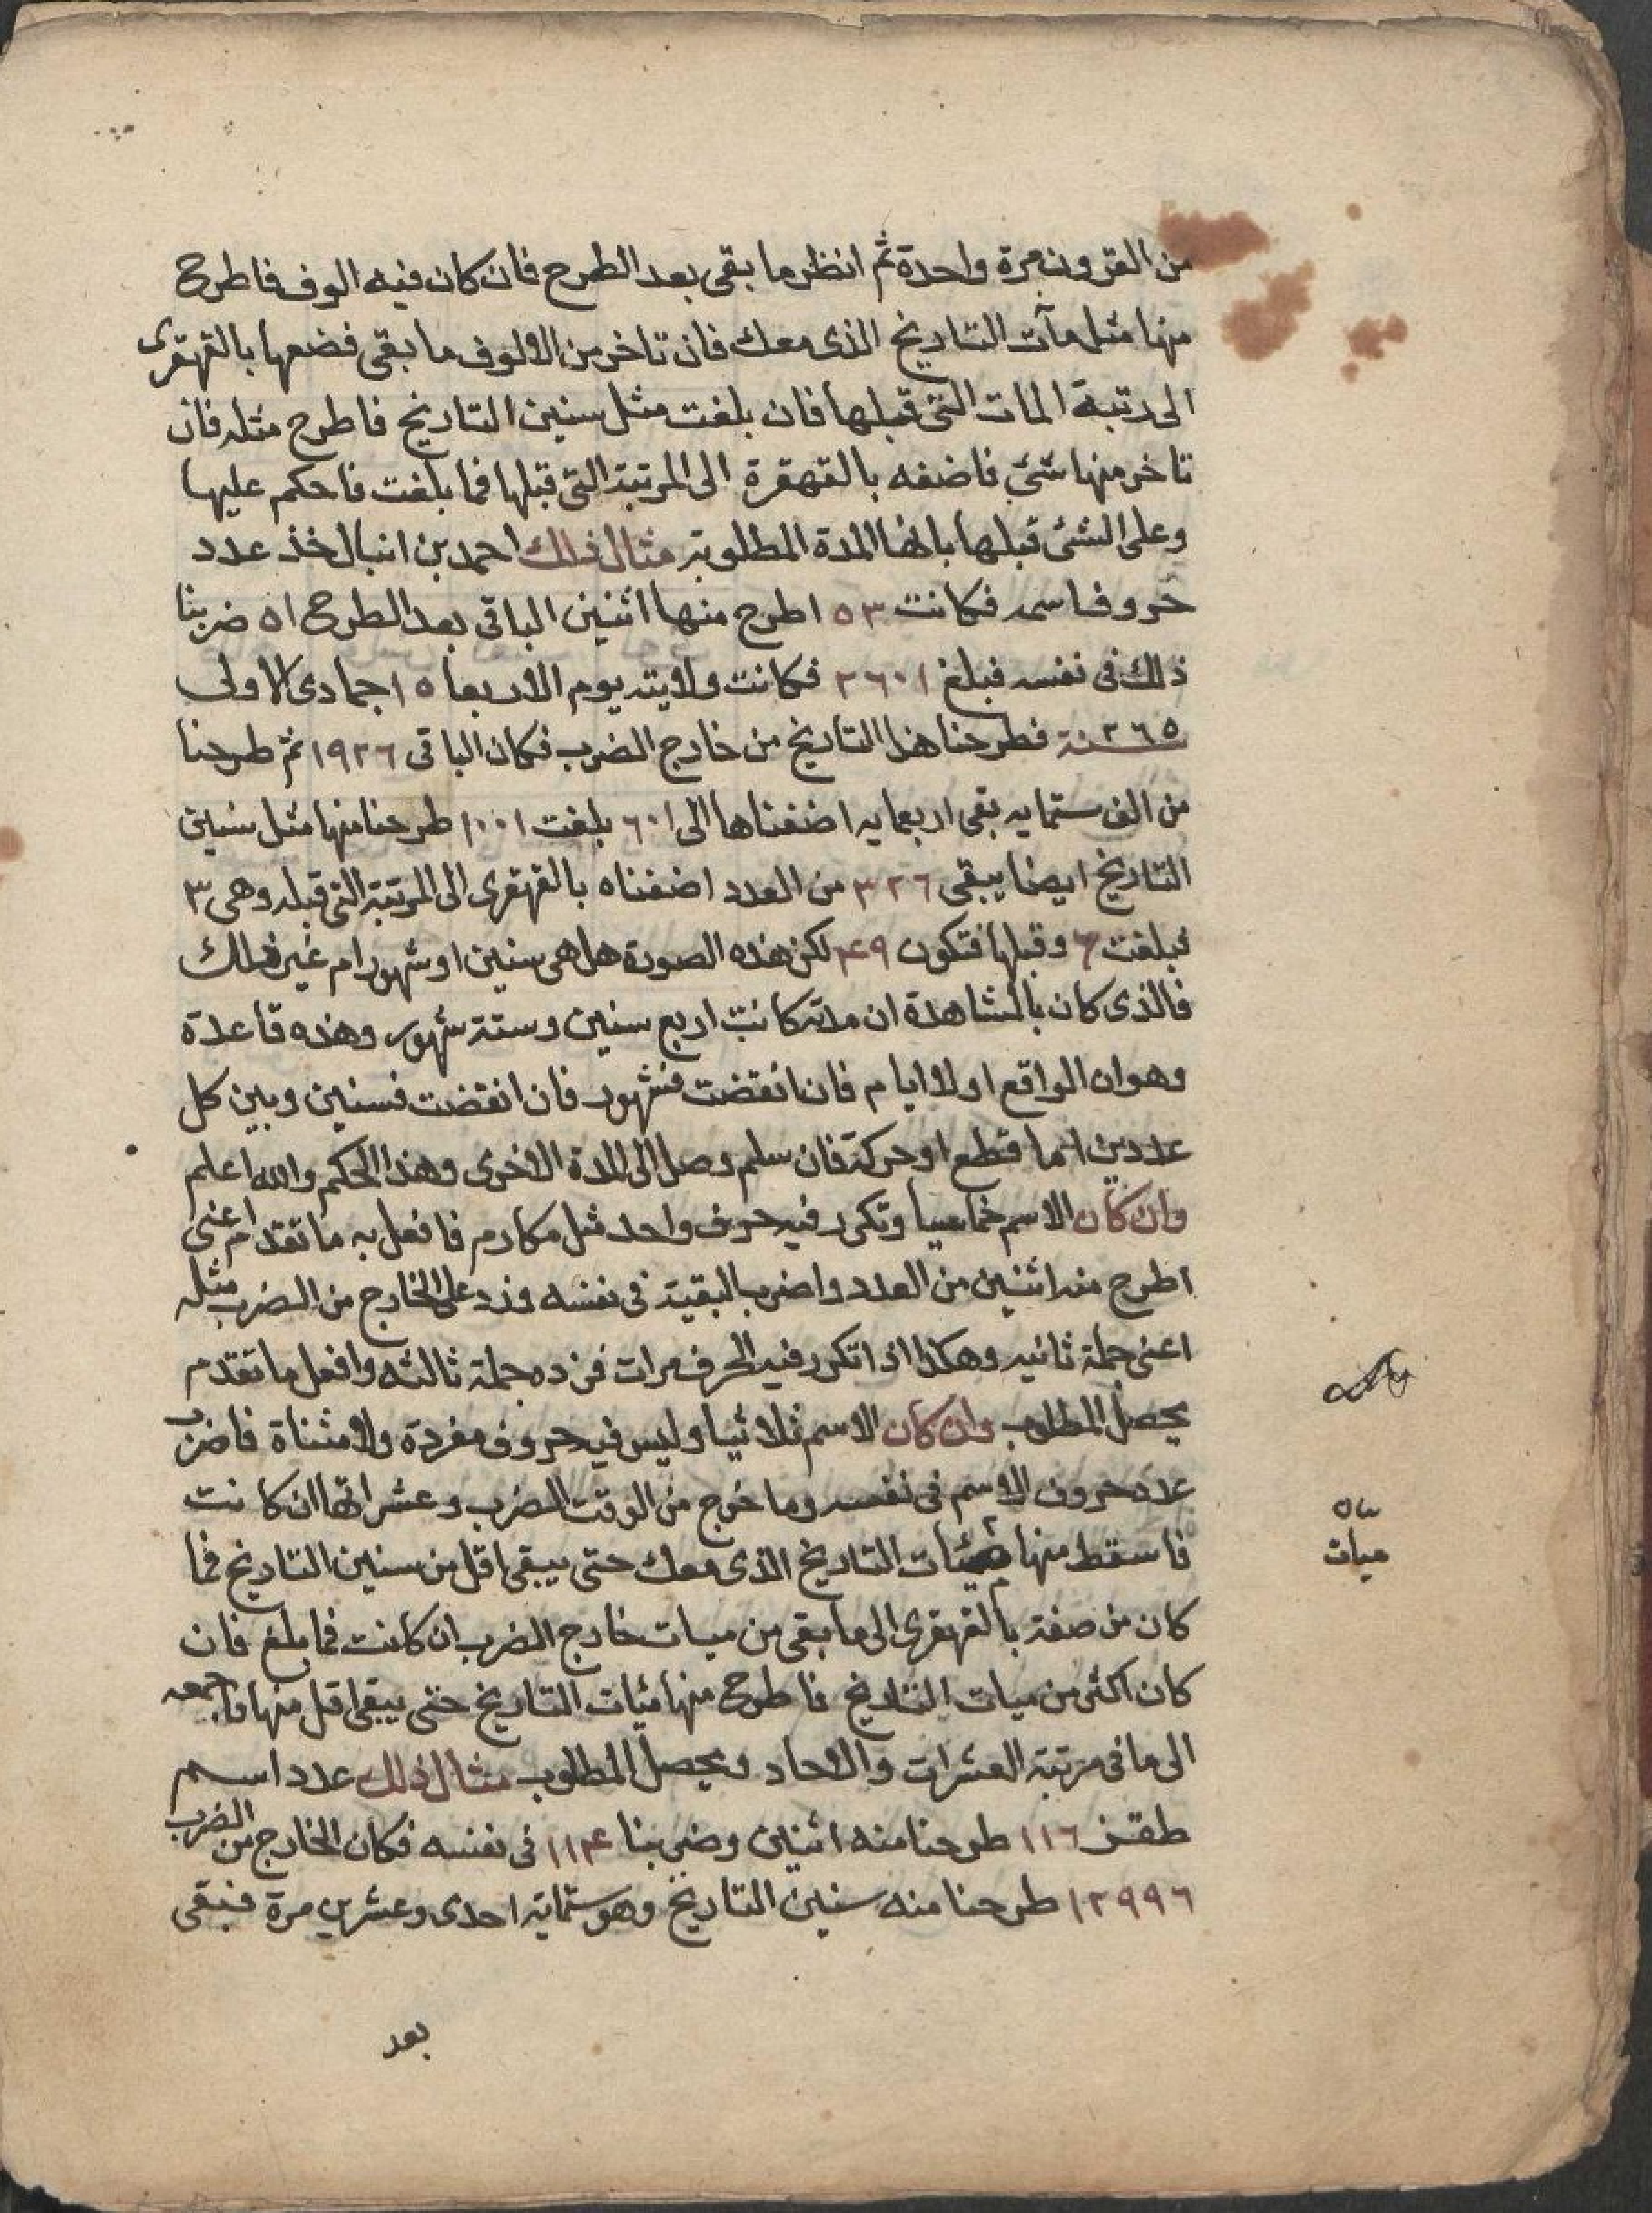 من القرون مرة واحدة ثم انظر ما بقى بعد الطرح فان كان فيه الوف فاطرح
منها مثل مآت التاريخ الذى معك فان تاخر من الالوف ما بقى فضعها بالقهقرى
الى رتبة المات التى قبلها فان بلغت مثل سنين التاريخ فاطرح مثله فان
تاخر منها شئ فاضفه بالقهقرة الى المرتبة التى قبلها فما بلغت فاحكم عليها
وعلى الشئ قبلها بانها المدة المطلوبة مثال ذلك احمد بن انبال خذ عدد
حروف اسمه فكانت ٥٣ اطرح منها اثنين الباقى بعد الطرح ٥١ ضربنا
ذلك فى نفسه فبلغ ٢٦٠١ فكانت ولايته يوم الاربعا ١٥ جمادى الاولى
سنة ٢٦٥ فطرحنا هذا التاريخ من خارج الضرب فكان الباقى ١٩٢٦ ثم طرحنا
من الف ستمايه بقى اربعمايه اضفناها الى ٦٠١ بلغت ١٠٠١ طرحنا منها مثل سنين
التاريخ ايضا يبقى ٣٢٦ من العدد اضفناه بالقهقرى الى المرتبة التى قبله وهى ٣
فبلغت ٦ وقبلها فتكون ٤٩ لكن هذه الصورة هل هى سنين او شهور ام غير ذلك
فالذى كان بالمشاهدة ان مدته كانت اربع سنين وستة شهور وهذه قاعدة
وهو ان الواقع اولا ايام فان انقضت فشهور فان انقضت فسنين وبين كل
عددين اما قطع او حركة فان سلم وصل الى المدة الاخرى وهذا الحكم والله اعلم
وان كان الاسم خماسيا وتكرر فيه حرف واحد مثل مكارم فافعل به ما تقدم اعنى
اطرح منه اثنين من العدد واضرب البقية فى نفسه وزد على الخارج من الضرب مثله
اعنى جملة ثانيه وهكذا اذا تكرر فيه الحرف مرات فزده جملة ثالثه وافعل ما تقدم
يحصل المطلوب وان كان الاسم ثلاثيا وليس فيه حروف مفردة ولا مثناة فاضرب
عدد حروف الاسم فى نفسه وما خرج من الوقت الضرب وعشراتها ان كانت
فاسقط منها مئات التاريخ الذى معك حتى يبقى اقل من سنين التاريخ فما
كان من صفة بالقهقرى الى ما بقى من ميات خارج الضرب ان كانت فما بلغ فان
كان اكثر من ميات التاريخ فاطرح منها مئات التاريخ حتى يبقى اقل منها فاجمعه
الى ما فى مرتبة العشرات والاحاد ويحصل المطلوب مثال ذلك عدد اسم
طقز ١١٦ طرحنا منه اثنين وضربنا ١١٤ فى نفسه فكان الخارج من الضرب
١٢٩٩٦ طرحنا منه سنين التاريخ وهو ستماية احدى وعشرين مرة فبقى
بعد
ميات